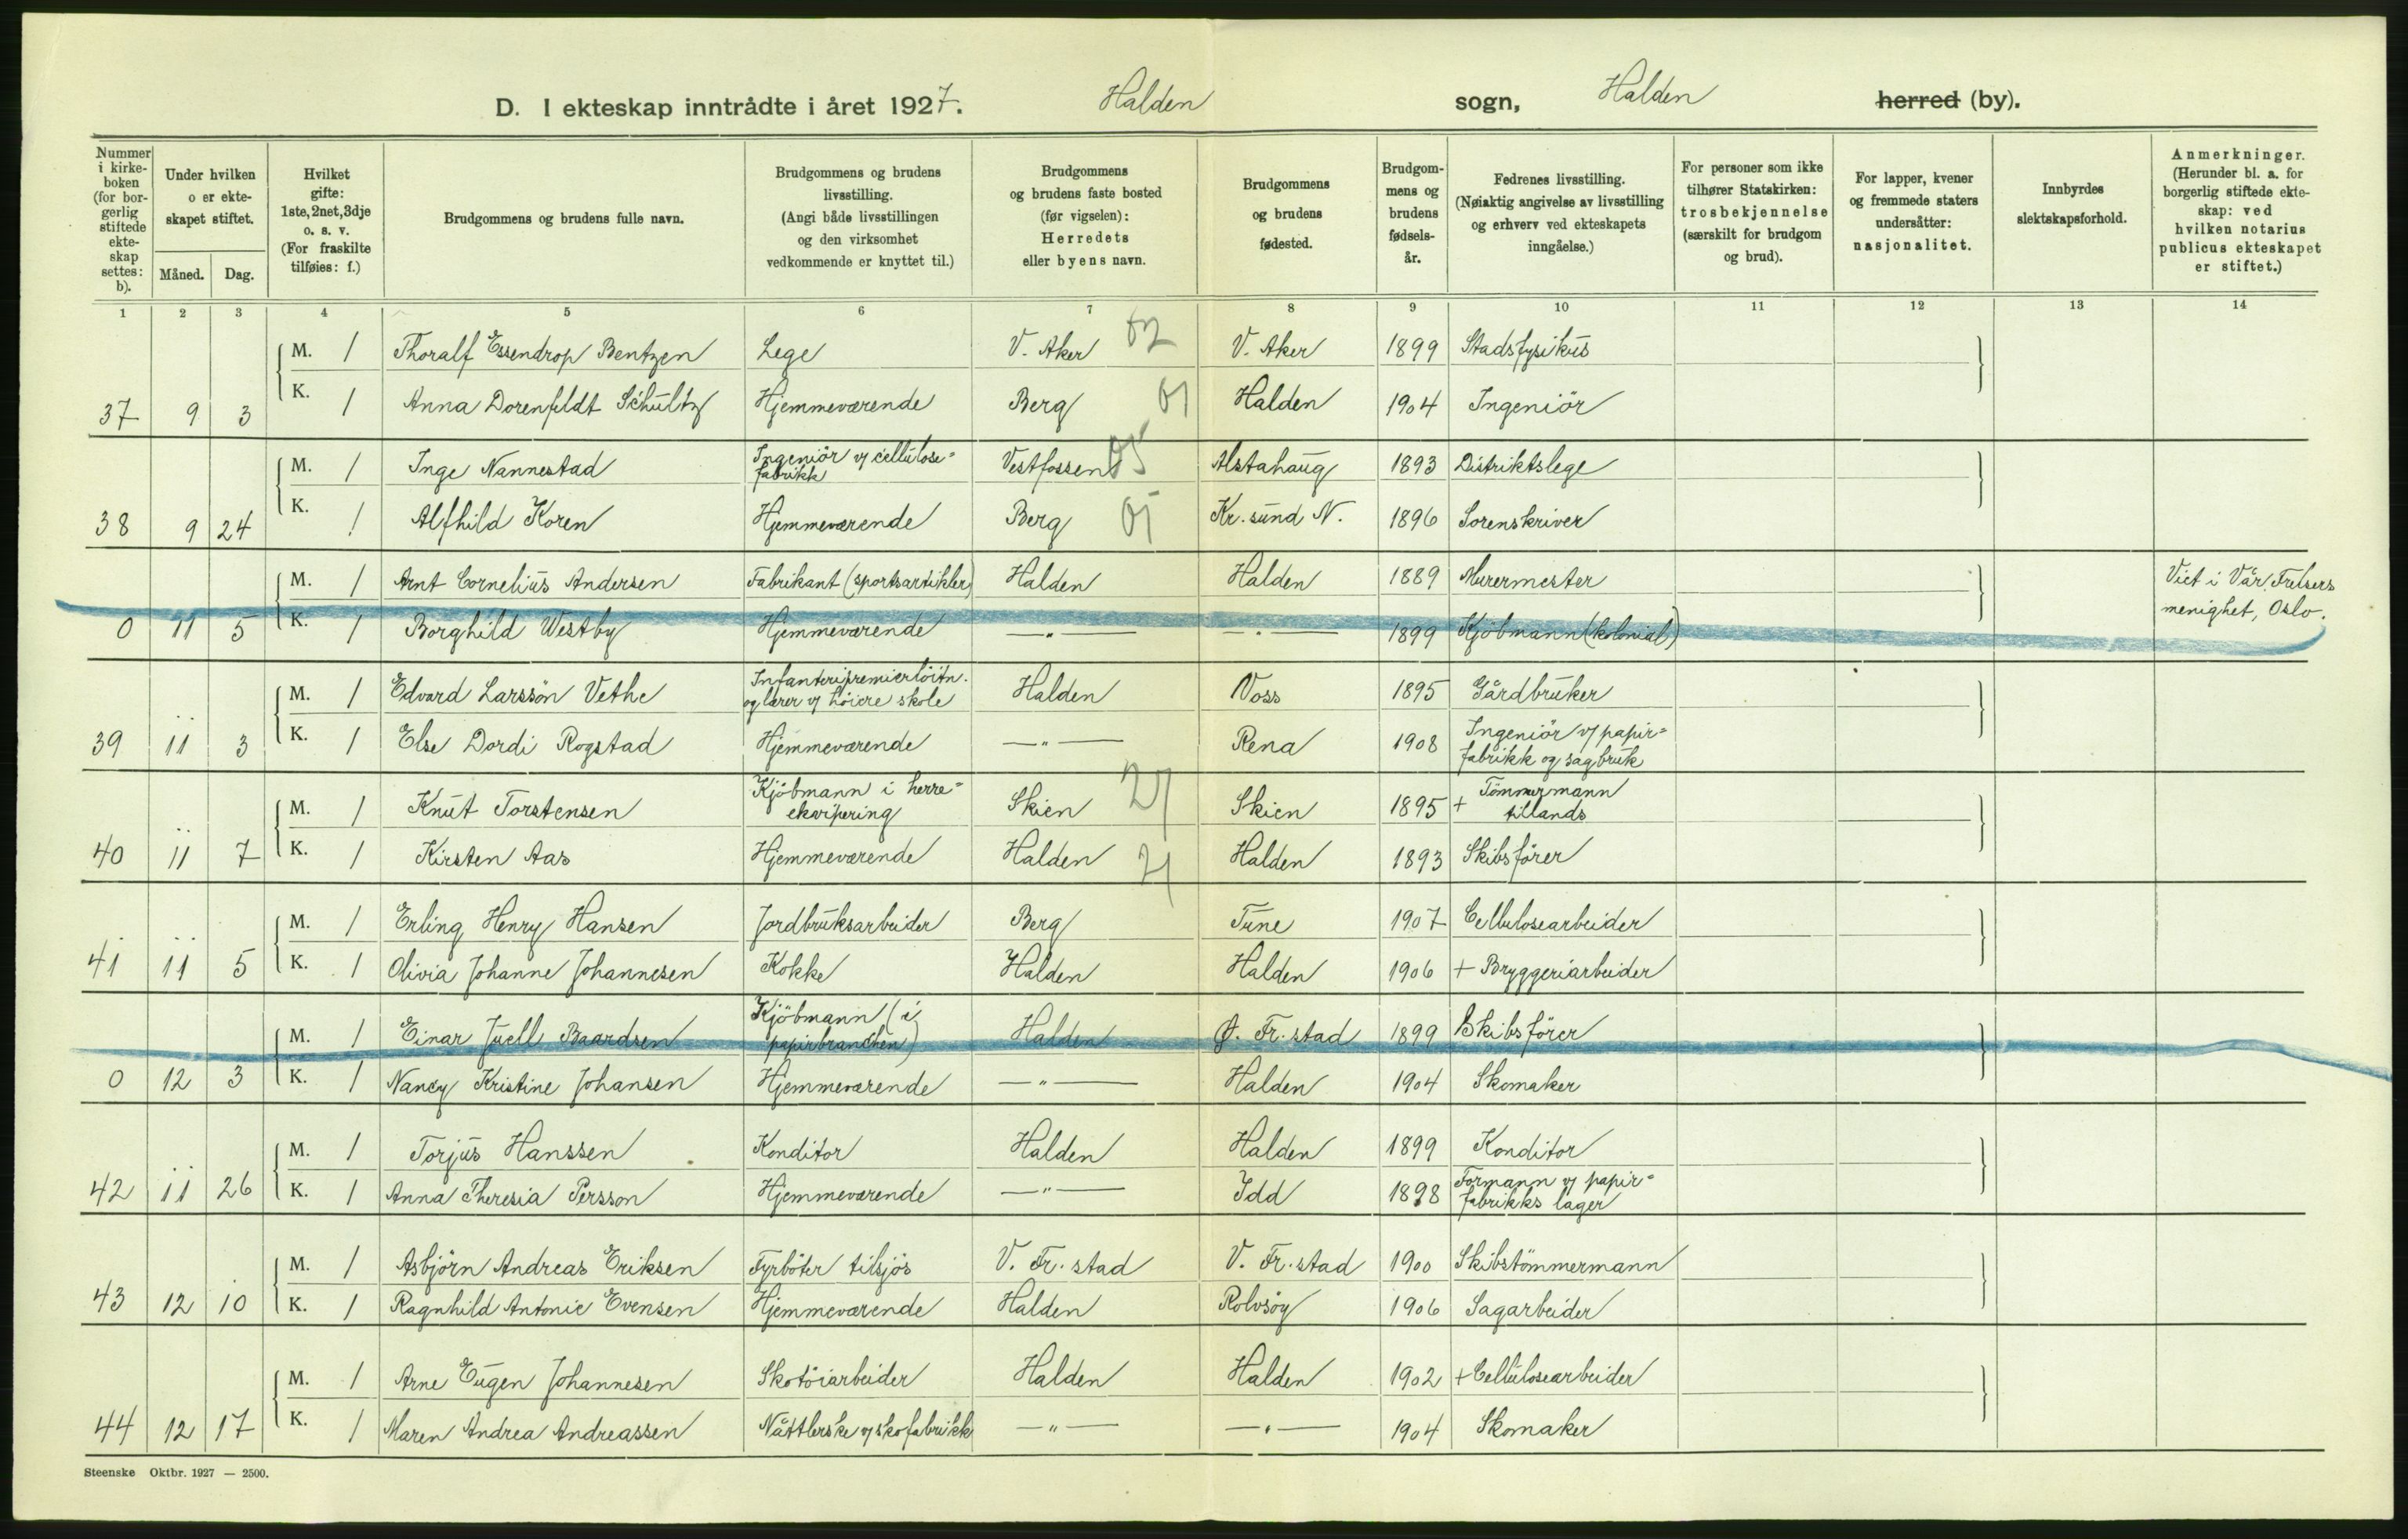 D. I ekteskap inntrådte i året 1927. Halden sogn, Halden herred (by).
Nummer i kirke-boken (for bor-gerlig stiftede ekte-skap settes: b).
Under hvilken o er ekte-skapet stiftet.
Måned. Dag.
Hvilket gifte: 1ste, 2net, 3dje o. s. v. (For fraskilte tilføies: f.)
Brudgommens og brudens fulle navn.
Brudgommens og brudens livsstilling. (Angi både livsstillingen og den virksomhet vedkommende er knyttet til.)
Brudgommens og brudens faste bosted (før vigselen): Herredets eller byens navn.
Brudgommens og brudens fødested.
Brudgom-mens og brudens fødsels-år.
Fedrenes livsstilling. (Nøiaktig angivelse av livsstilling og erhverv ved ekteskapets inngåelse.)
For personer som ikke tilhører Statskirken: trosbekjennelse (særskilt for brudgom og brud).
For lapper, kvener og fremmede staters undersåtter: nasjonalitet.
Innbyrdes slektskapsforhold.
Anmerkninger. (Herunder bl. a. for borgerlig stiftede ekte-skap: ved hvilken notarius publicus ekteskapet er stiftet.)
1 2 3 4 5 6 7 8 9 10 11 12 13 14
M. 1 Thoralf Essendrop Bentzen Lege V. Aker 02 V. Aker 1899 Stadsfysikus
37 9 3 K. 1 Anna Dorenfeldt Schultz Hjemmeværende Berg 01 Halden 1904 Ingeniör
M. 1 Inge Nannestad Ingeniör v/ cellulose=fabrikk Vestfossen 05 Alstahaug 1893 Distriktslege
38 9 24 K. 1 Alfhild Koren Hjemmeværende Berg 01 Kr.sund N. 1896 Sorenskriver
M. 1 Arnt Cornelius Andersen Fabrikant (sportsartikler) Halden Halden 1889 Murermester Viet i Vår Frelsers
0 11 5 K. 1 Borghild Westby Hjemmeværende —"— —"— 1899 Kjöbmann (kolonial) menighet, Oslo.
M. 1 Edvard Larssön Vethe Infanteripremierlöitn. og lærer v/ höiere skole Halden Voss 1895 Gårdbruker
39 11 3 K. 1 Else Dordi Rogstad Hjemmeværende —"— Rena 1908 Ingeniör v/ papir=fabrikk og sagbruk
M. 1 Knut Torstensen Kjöbmann i herre=ekvipering Skien 27 Skien 1895 + Tömmermann tillands
40 11 7 K. 1 Kirsten Aas Hjemmeværende Halden 21 Halden 1893 Skibsförer
M. 1 Erling Henry Hansen Jordbruksarbeider Berg Tune 1907 Cellulosearbeider
41 11 5 K. 1 Olivia Johanne Johannesen Kokke Halden Halden 1906 + Bryggeriarbeider
M. 1 Einar Juell Baardsen Kjöbmann (i papirbranchen) Halden Ø. Fr.stad 1899 Skibsförer
0 12 3 K. 1 Nancy Kristine Johansen Hjemmeværende —"— Halden 1904 Skomaker
M. 1 Torjus Hanssen Konditor Halden Halden 1899 Konditor
42 11 26 K. 1 Anna Theresia Persson Hjemmeværende —"— Idd 1898 Formann v/ papir=fabrikks lager
M. 1 Asbjörn Andreas Eriksen Fyrböter tilsjös V. Fr.stad V. Fr.stad 1900 Skibstömmermann
43 12 10 K. 1 Ragnhild Antonie Evensen Hjemmeværende Halden Rolvsöy 1906 Sagarbeider
M. 1 Arne Eugen Johannesen Skotöiarbeider Halden Halden 1902 + Cellulosearbeider
44 12 17 K. 1 Maren Andrea Andreassen Nåttlerske v/ skofabrikk —"— —"— 1904 Skomaker
Steenske Oktbr. 1927 — 2500.